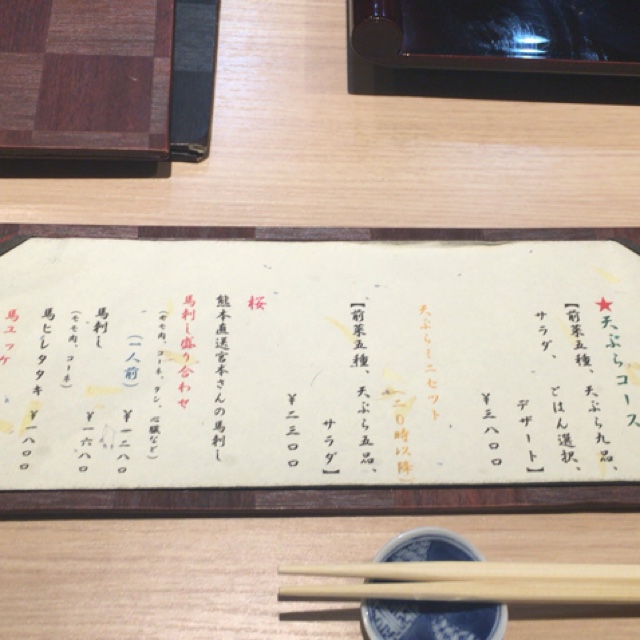 ★天ぷらコース
【前菜五種、天ぷら九品、
サラダ、ごはん選択、
デザート】
¥三八〇〇
天ぷらミニセット
(二〇時以降)
【前菜五種、天ぷら五品、
サラダ】
¥二三〇〇
桜
熊本直送宮本さんの馬刺し
馬刺し盛り合わせ
(一人前) ¥一二八〇
馬刺し
(モモ肉、コーネ)
¥一六八〇
馬ヒレタタキ ¥一八〇〇
馬ユッケ